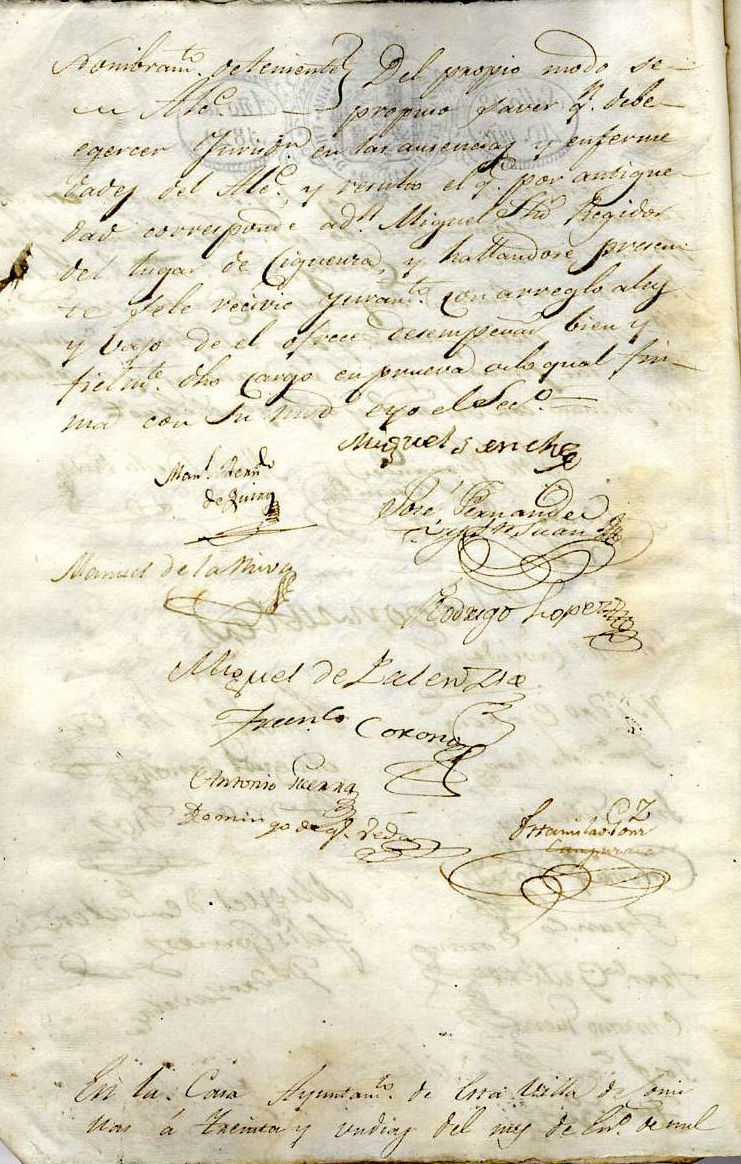 Nombram.to de teniente Del propio modo se
de Alc.e propuso saver q.n debe
egercer Jurisd.n en las ausencias y enferme
dades del Alc.e y resulto el q.e por antigue
dad corresponde a d.n Miguel Regidor
del lugar de Cigüenza, y hallandose presen
te se le recivio Juram.to con arreglo a ley
y vajo de el ofrece desempeñar bien y
fielm.te dho cargo en prueva de lo qual fir
ma con su mrd eyo el Sec.o
Miguel Senchez
Man.l Bern.do
de Quiros
José Fernandez
de S.n Juan
Manuel de la Riva
Rodrigo Lopez
Miguel de Palen
Fran.co Corona
Antonio Guerra
Domin
go de Q.vedo
Estanislao Gonz
En la Casa Ayuntam.to de esta Villa de Comi
llas á treinta y un dias del mes de En.o de mil